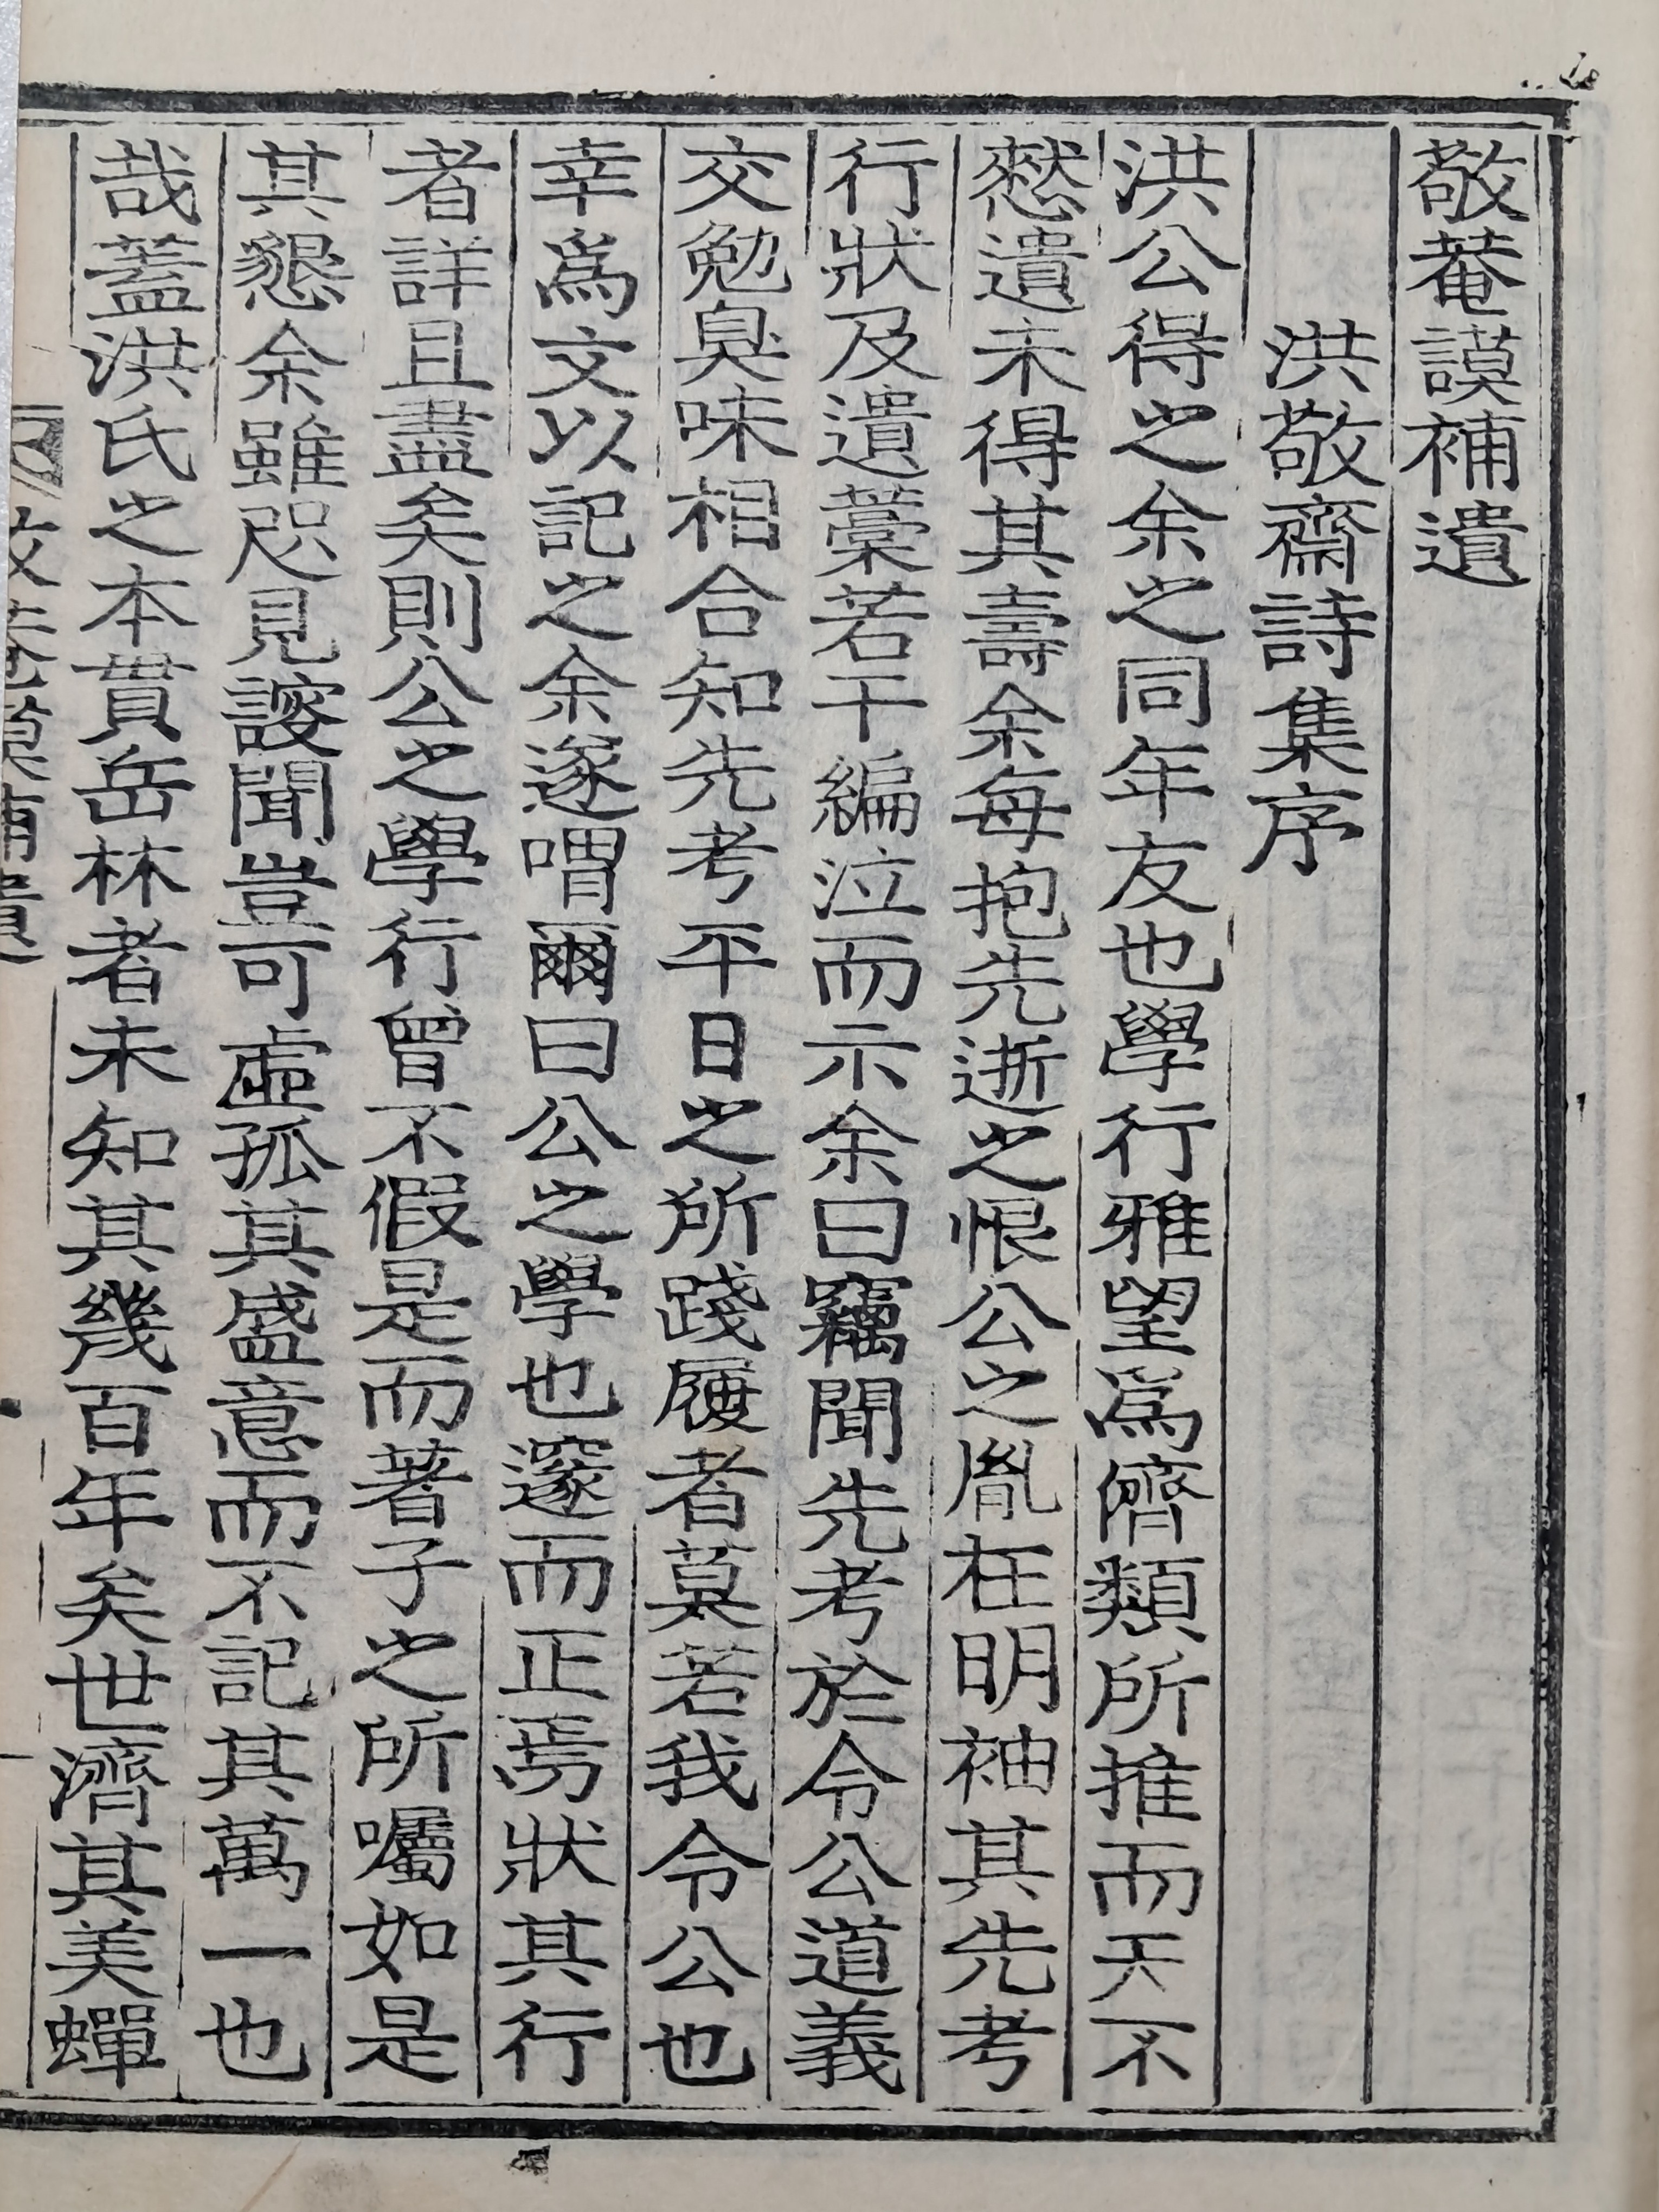 敬菴謨補遺
洪敬齋詩集序
洪公得之余之同年友也學行雅望爲儕類所推而天不
憖遺未得其壽余每抱先逝之恨公之胤在明袖其先考
行狀及遺藁若干編泣而示余曰竊聞先考於令公道義
交勉臭味相合知先考平日之所踐履者莫若我令公也
幸爲文以記之余遂喟爾曰公之學也邃而正焉狀其行
者詳且盡矣則公之學行曾不假是而著子之所囑如是
其懇余雖咫見謏聞豈可虛孤其盛意而不記其萬一也
哉蓋洪氏之本貫岳林者未知其幾百年矣世濟其美蟬